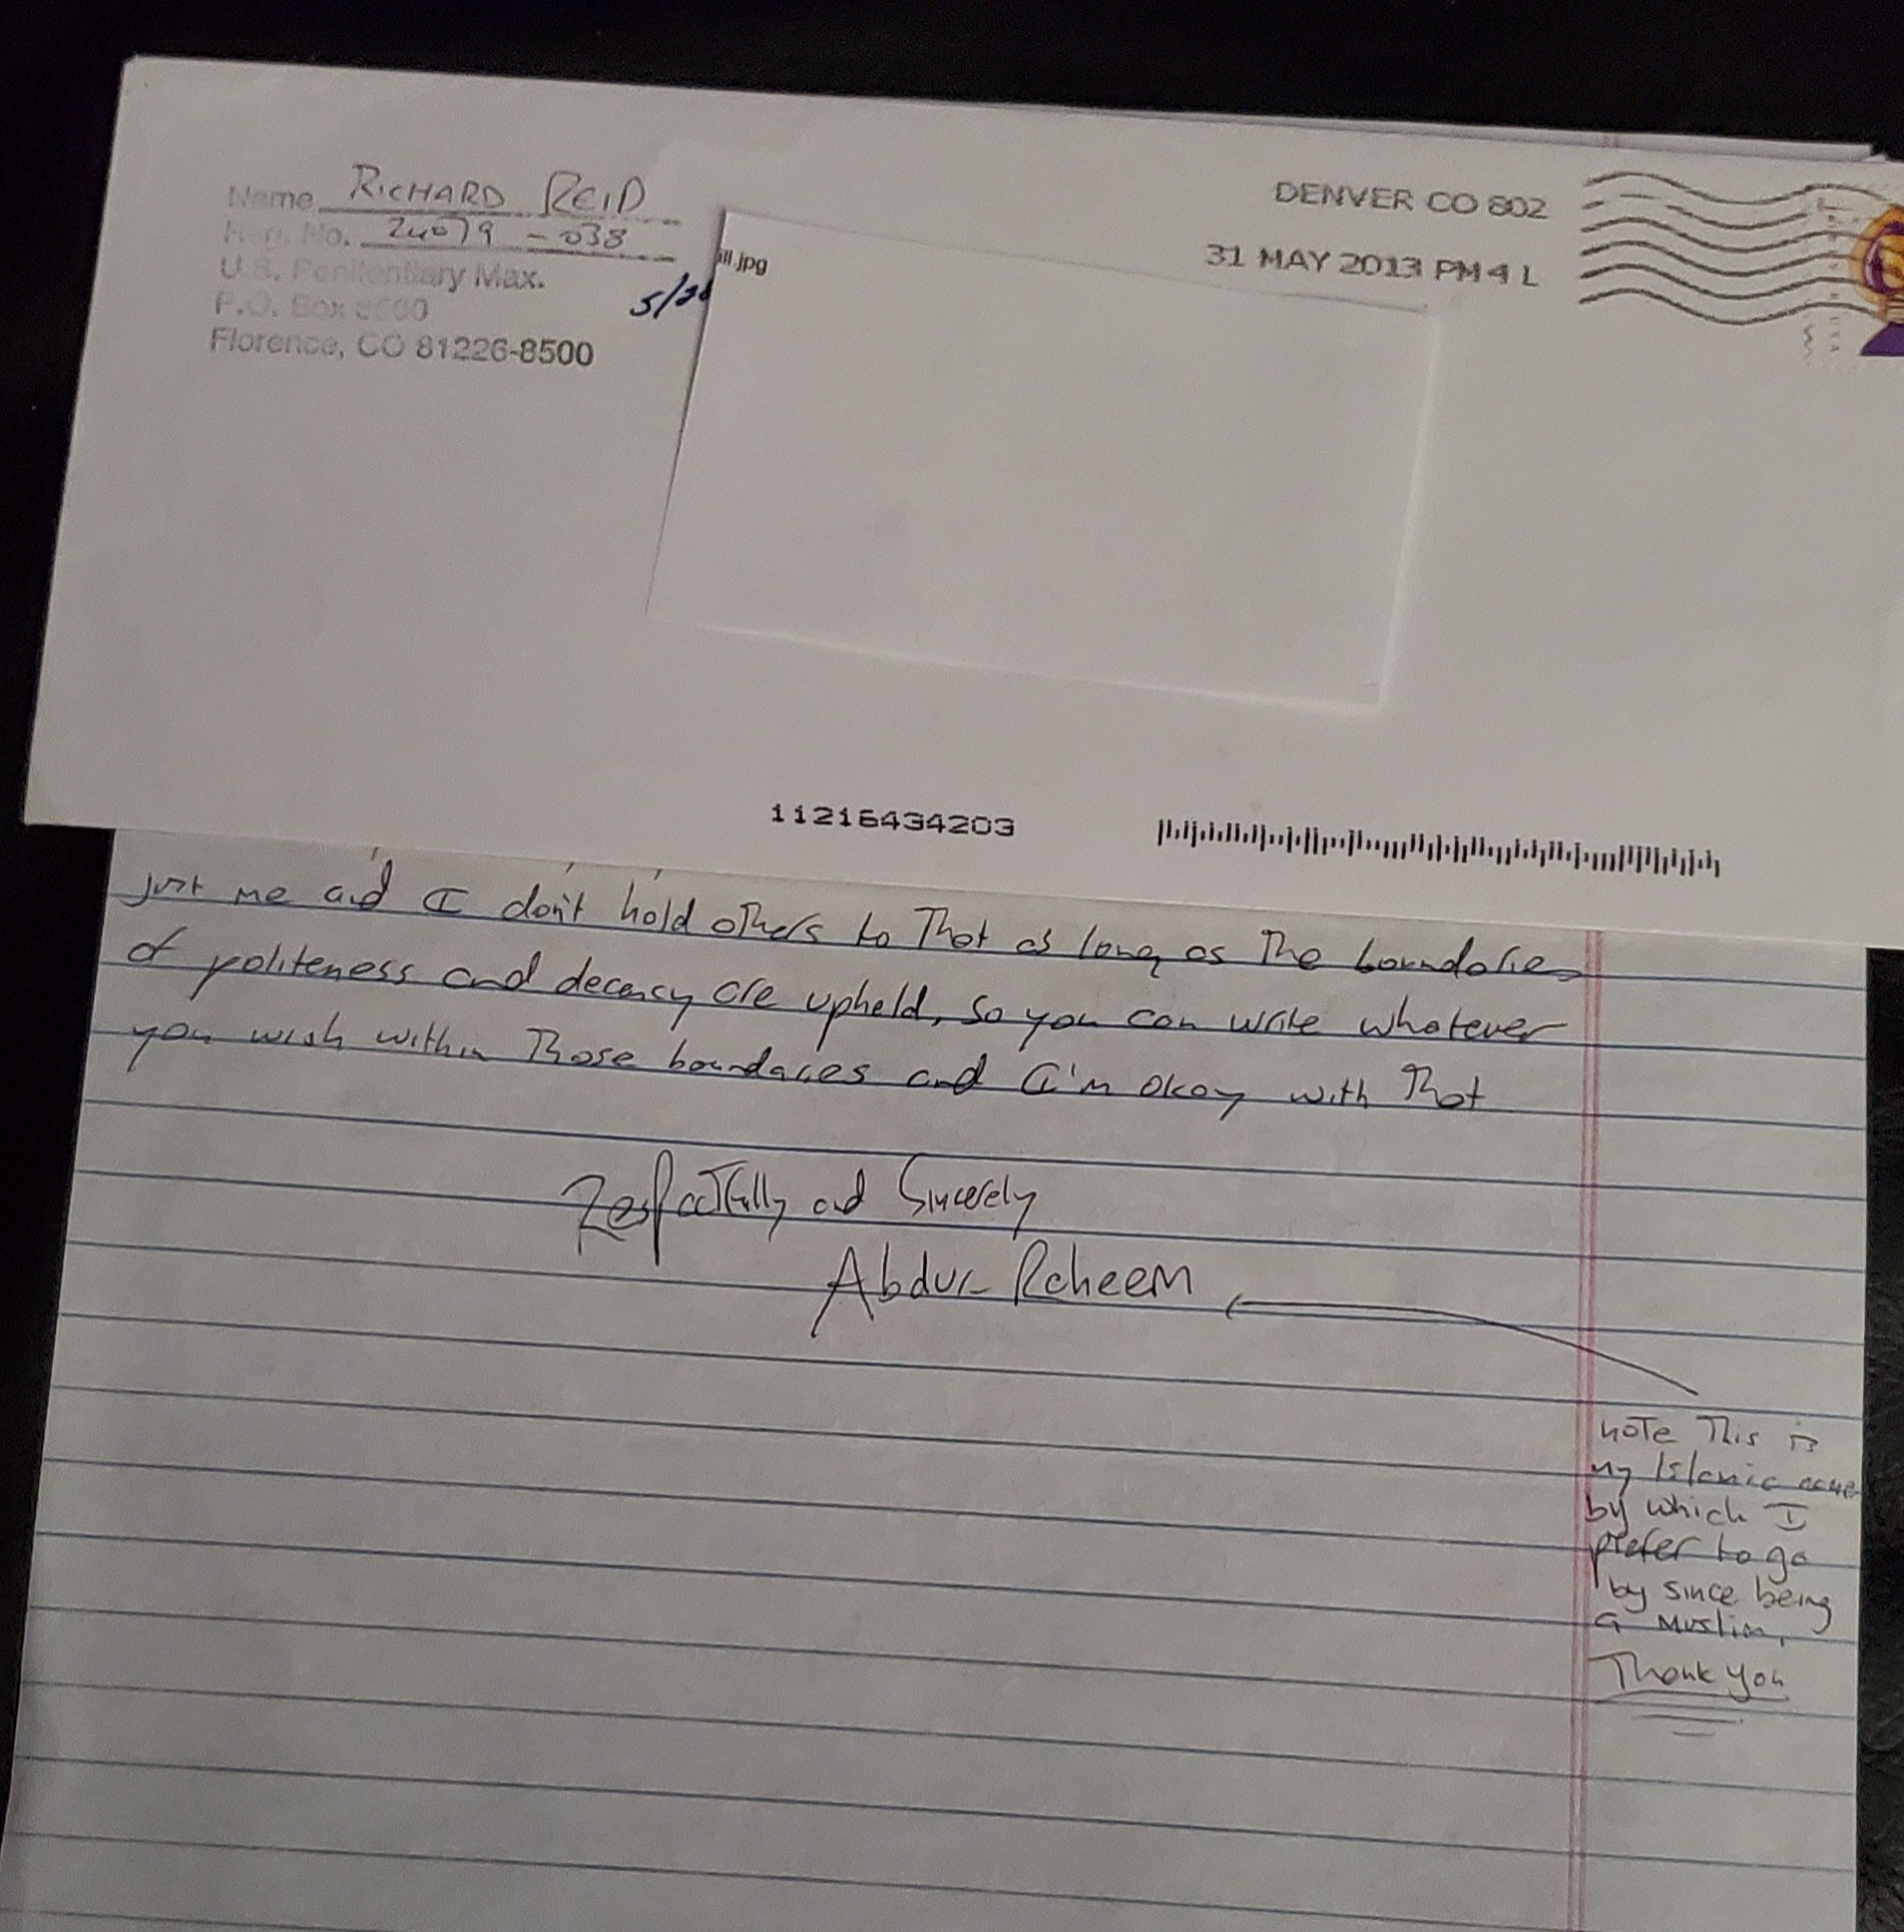 Name RICHARD REID
Reg. No. 24079-038
U.S. Penitentiary Max.
P.O. Box 8500
Florence, CO 81226-8500
5/28
ill.jpg
DENVER CO 802
31 MAY 2013 PM 4 L
11216434203
just me and I don't hold others to That as long as The boundaries
of politeness and decency are upheld, so you can write whatever
you wish within Those boundaries and I'm okay with That
Respectfully and Sincerely
Abdur-Raheem
note This is
my Islamic name
by which I
prefer to go
by since being
a Muslim,
Thank you